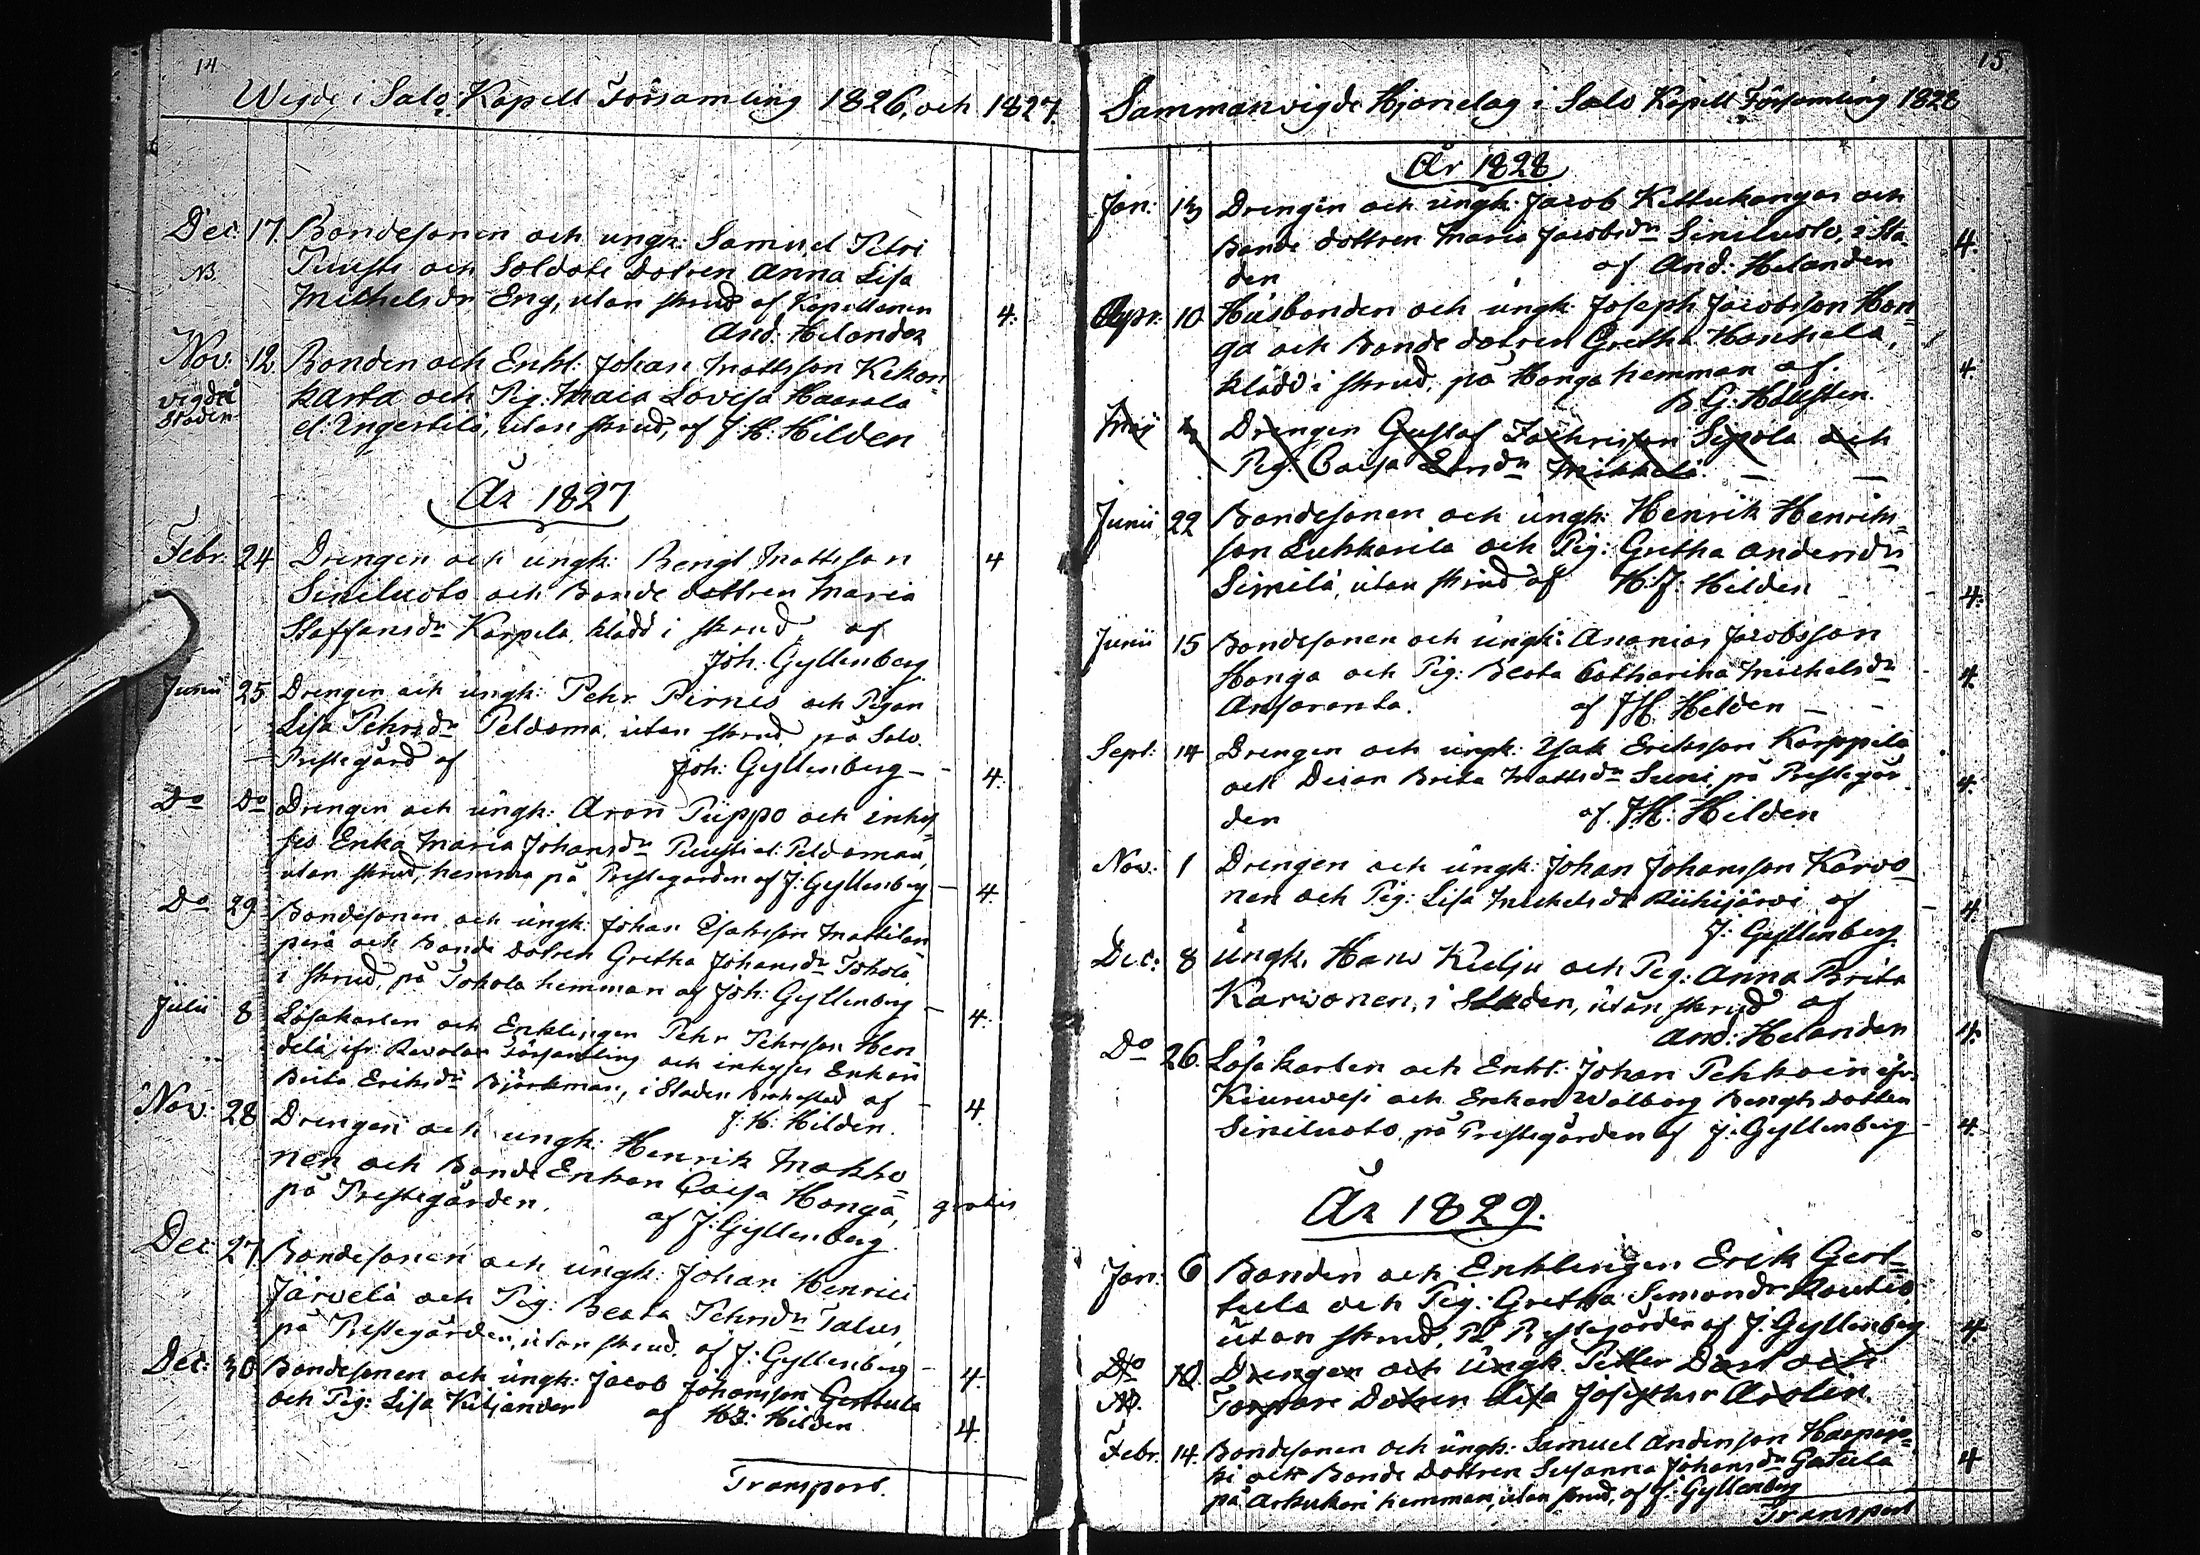 14
Wigde i Salo Kapell Församling 1826, och 1827.
Dec: 17. Bondesonen och ungk: Samuel Petri
NB. Puusti och Soldats Dotren Anna Lisa
Michelsdr Eng, utan skrud af Kapellanen 4:
And. Helander
Nov. 12 Bonden och Enkl. Johan Mattsson Kekon
vigde i karta och Pig. Maia Lovisa Haarala
Staden el. Engeskilä, utan skrud, af J: H: Hilden
År 1827
Febr. 24 Drengen och ungk: Bengt Mattsson 4
Siniluoto och Bonde dottren Maria
Staffansdr Karpila, klädd i skrud, af
Joh: Gyllenberg.
Junii 25 Drengen och ungk: Pehr Pirnes och Pigan
Lisa Pehrsdr Peldoma, utan skrud, på Salo
Prestegård af Joh: Gyllenberg - 4.
Do Do Drengen och ungk: Aron Piippo och inhys
ses Enka Maria Johansdr Puusti el. Peldoman,
utan skrud, hemma på Prestegården af J: Gyllenberg - 4.
Do 29 Bondesonen och ungk: Johan Esaksson Mattilan
perä och Bonde dotren Gretha Johansdr Tokola
i skrud, på Tokola hemman af Joh: Gyllenberg - 4.
Julii 8 Lösakarlen och Enklingen Pehr Pehrsson Hen
delä, ifr. Revolax Församling och inhyses Enkan
Brita Eriksdr Björkman, i Staden Brahestad af - 4
J: H: Hilden.
Nov: 28 Drengen och ungk: Henrik Makko
nen och Bonde Enkan Caisa Honga, gratis
på Prestegården. af J: Gyllenberg.
Dec 27 Bondesonen och ungk: Johan Henrici
Järvelä och Pig: Beata Pehrsdr Talus,
på Prestegården, utan skrud, af J: Gyllenberg - 4.
Dec: 30 Bondesonen och ungk: Jacob Johansson Gertula
och Pig: Lisa Kiljander af HJ: Hilden 4.
Transport.
15
Sammanvigde Hjonelag i Salo Kapell Församling 1828
År 1828
Jan: 13 Drengen och ungk: Jacob Kettukangas och
Bonde dottren Maria Jacobsdr Siniluoto, i Sta 4.
den af And: Helander
Apr: 10 Husbonden och ungk: Joseph Jacobsson Hon
ga och Bonde dotren Gretha Hankela,
klädd i skrud, på Honga hemman af. 4.
B G: Hållsten.
Maj Drengen Gustaf Zachrisson Sipola och
Pig: Caisa Ersdr Mikkelä. - -
Junii 22 Bondesonen och ungk: Henrik Henriks
son Lukkarila och Pig: Gretha Andersdr
Similä, utan skrud af H: J: Hilden 4.
Junii 15 Bondesonen och ungk: Ananias Jacobsson
Honga och Pig: Beata Catharina Michelsdr 4.
Ansaranta. af JH. Hilden - -
Sept: 14 Drengen och ungk: Isak Eriksson Karppila
och Deian Brita Mattsdr Suni, på Prestegår 4.
den af JH. Hilden
Nov: 1 Drengen och ungk: Johan Johansson Karvo
nen och Pig: Lisa Michelsdr Riihijärvi af - 4.
J: Gyllenberg.
Dec: 8 ungk. Hans Kulju och Pig: Anna Brita
Karvonen, i Staden, utan skrud af
And: Helander 4:
Do 26. Lösa karlen och Enkl: Johan Pehkoin ifr.
Kiuruvesi och Enkan Walborg Bengts dotter
Siniluoto, på Prestegården af J: Gyllenberg 4.
År 1829.
Jan: 6 Bonden och Enklingen Erik Gert
tula och Pig: Gretha Simonsdr Rautio
utan skrud, På Prestegården af J: Gyllenberg 4
Do 10. Drengen och ungk. Petter Dast och
NB. Torpare Dotren Lisa Josephsdr Arolin.
Febr. 14. Bondesonen och ungk: Samuel Andersson Haapajo
ki och Bonde Dottren Susanna Johansdr Gertula 4
på Arkukari hemman, utan skrud, af J: Gyllenberg
Transport